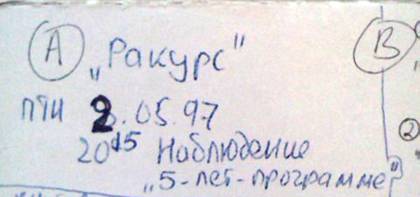 A „Ракурс" B
птн 2.05.97
20 15 Наблюдение
„5-лет-программе"